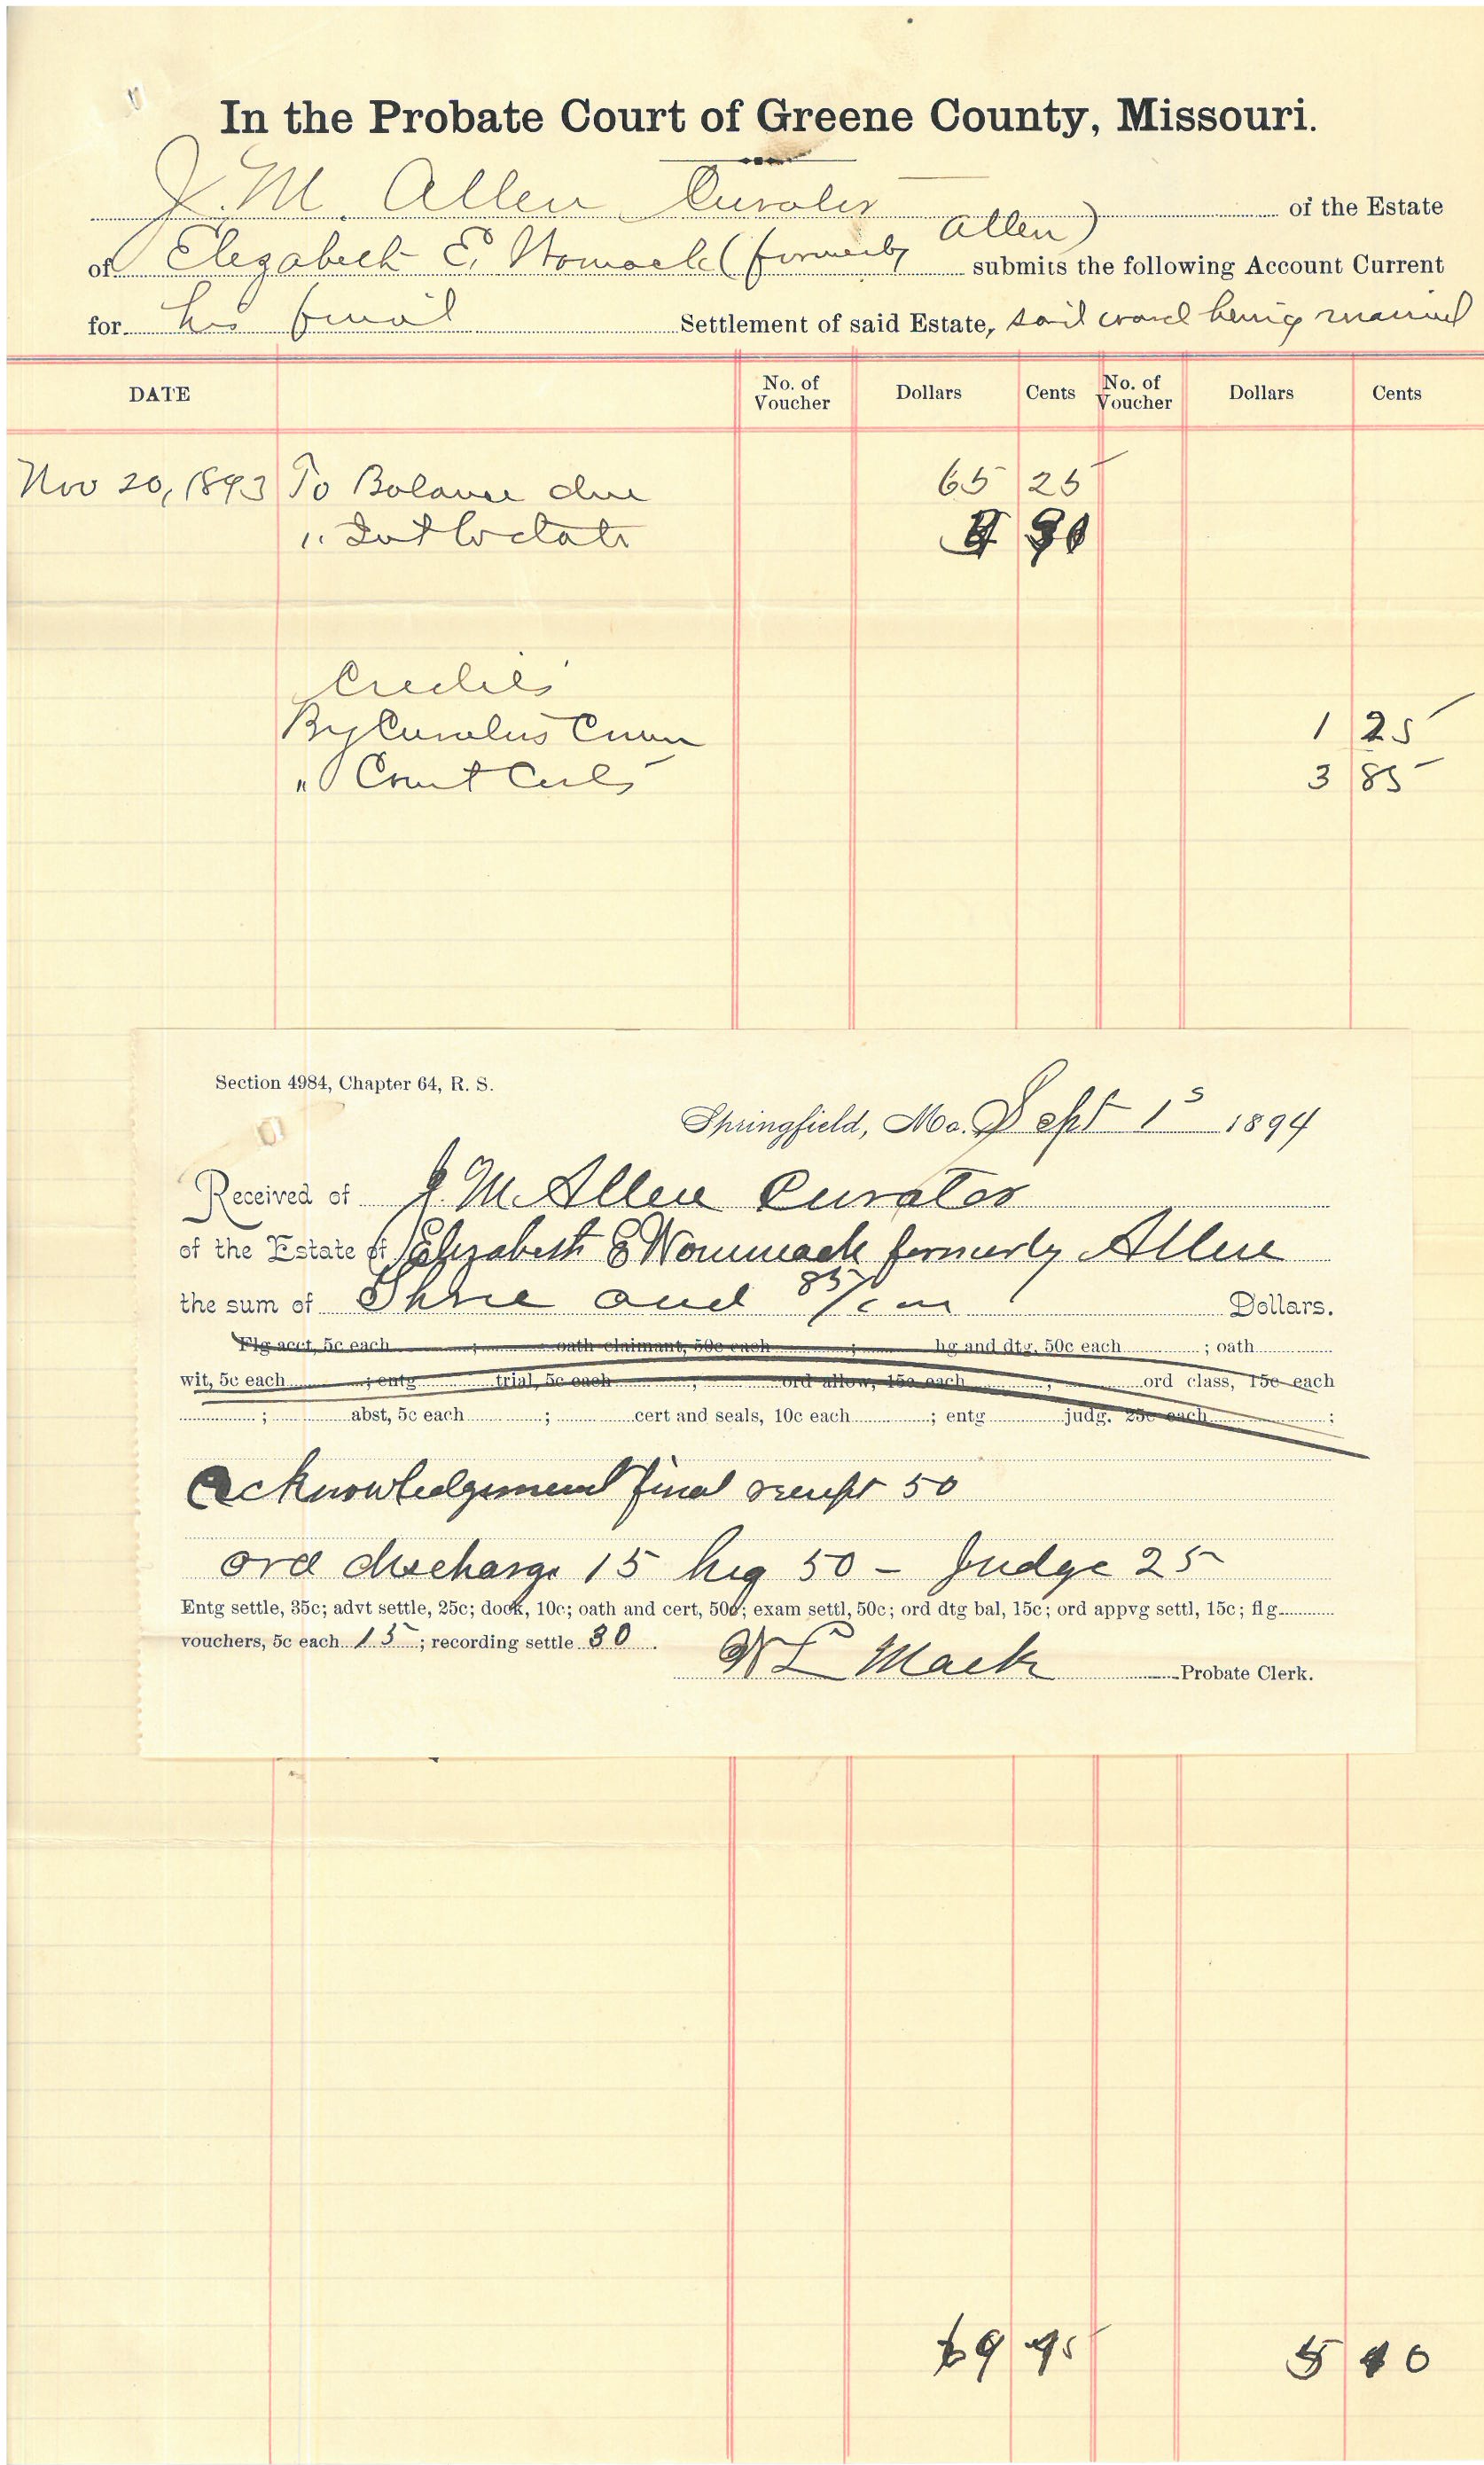 In the Probate Court of Greene County, Missouri.
J. M. Allen Curator of the Estate
of Elizabeth E. Womack (formerly Allen) submits the following Account Current
for his final Settlement of said Estate, said ward being married
DATE No. of Voucher Dollars Cents No. of Voucher Dollars Cents
Nov 20, 1893 To Balance due 65 25
" Int to date
Credits
By Curators Comm 1 25
" Court Costs 3 85
Section 4984, Chapter 64, R. S.
Springfield, Mo. Sept 1s 1894
Received of J. M. Allen Curator
of the Estate of Elizabeth E Wommack formerly Allen
the sum of Three and 85/100 Dollars.
Flg acct, 5c each ; oath claimant, 50c each ; hg and dtg, 50c each ; oath
wit, 5c each ; entg trial, 5c each ; ord allow, 15c each ; ord class, 15c each
; abst, 5c each ; cert and seals, 10c each ; entg judg. 25c each ;
acknowledgement final receipt 50
ord discharge 15 hig 50 - Judge 25
Entg settle, 35c; advt settle, 25c; dock, 10c; oath and cert, 50c; exam settl, 50c; ord dtg bal, 15c; ord appvg settl, 15c; flg
vouchers, 5c each 15; recording settle 30.
W L Mack Probate Clerk.
69 95 5 10